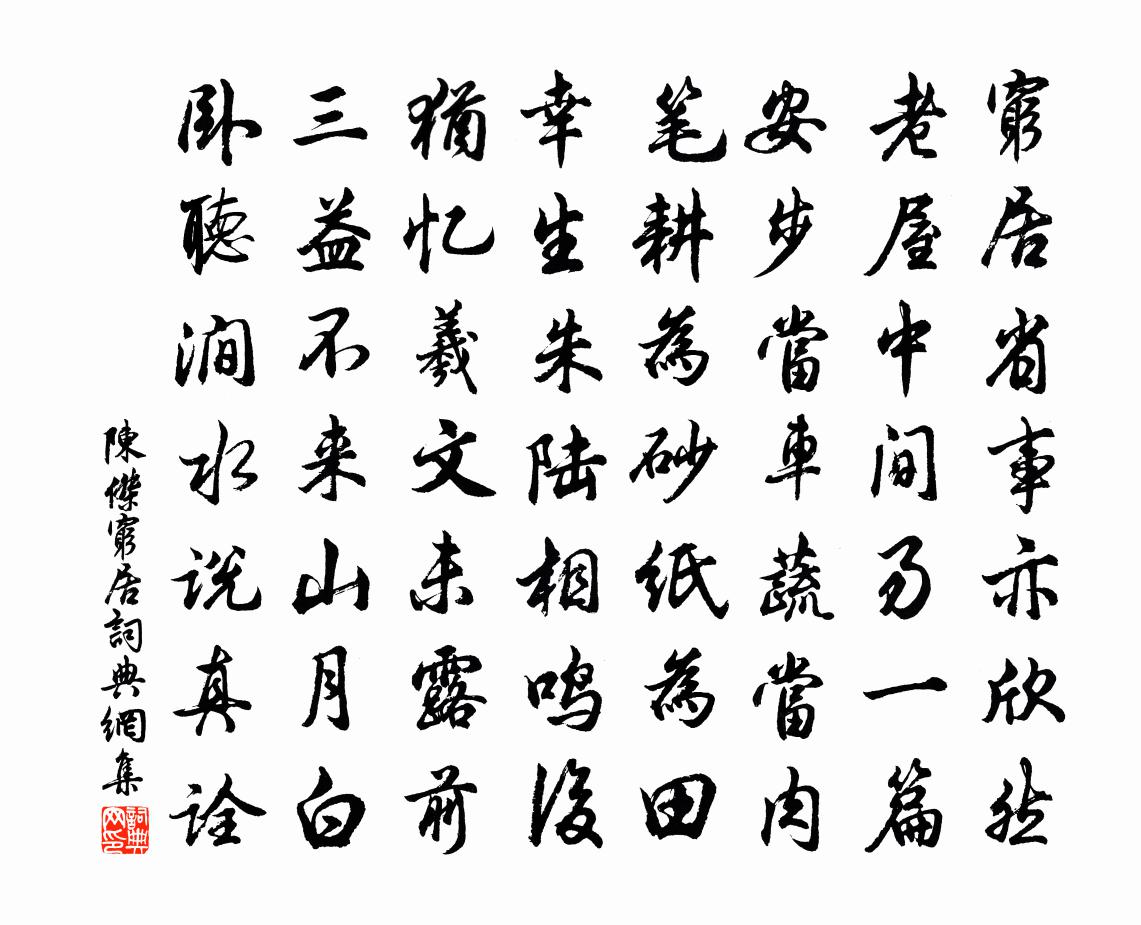 窮居省事亦欣然
老屋中间易一篇
安步當車蔬當肉
笔耕為砂纸為田
幸生朱陆相鸣後
猶忆羲文未露前
三益不来山月白
卧聽涧水说真诠
陳傑窮居詞典網集
詞典网印